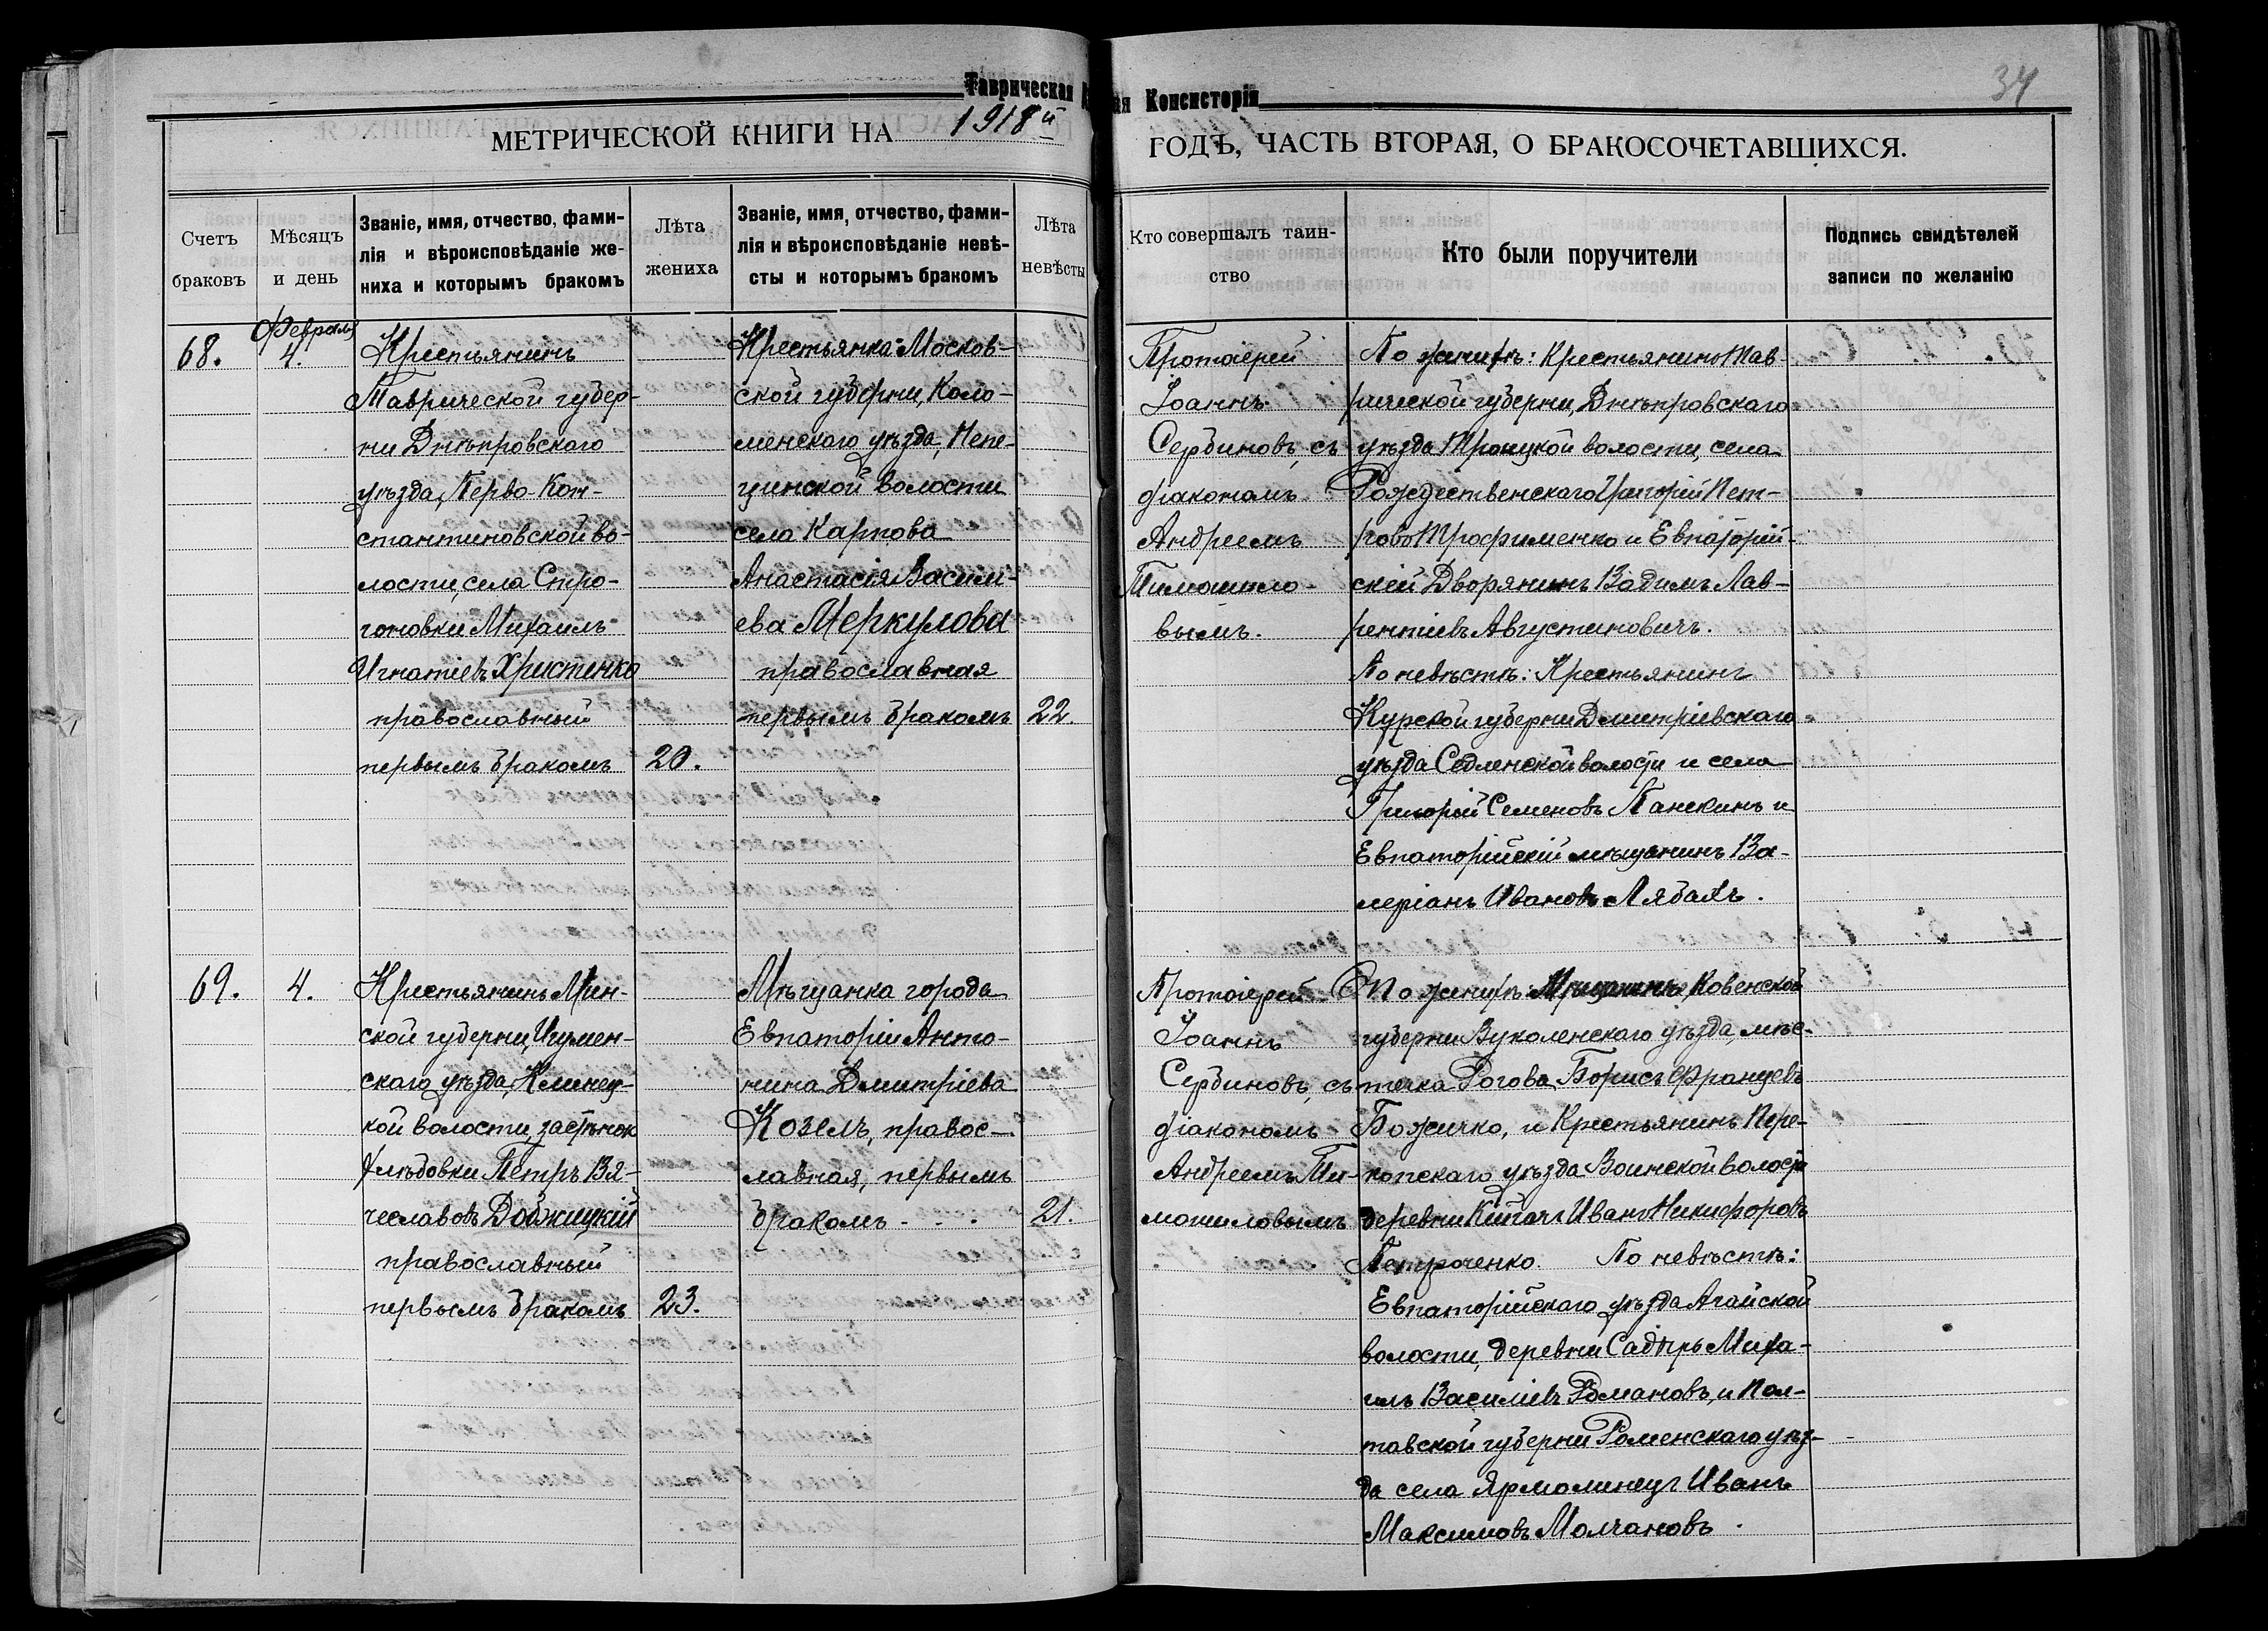 Таврическая
ая Консисторія
34
МЕТРИЧЕСКОЙ КНИГИ НА 1918й
ГОДЪ, ЧАСТЬ ВТОРАЯ, О БРАКОСОЧЕТАВШИХСЯ.
Счетъ
браковъ
Мѣсяцъ
и день
Званіе, имя, отчество, фами-
лія и вѣроисповѣданіе же-
ниха и которымъ бракомъ
Лѣта
жениха
Званіе, имя, отчество, фами-
лія и вѣроисповѣданіе невѣ-
сты и которымъ бракомъ
Лѣта
невѣсты
Кто совершалъ таин-
ство
Кто были поручители
Подпись свидѣтелей
записи по желанію
68.
Февраля
4.
Крестьянинъ
Таврической губер-
ни Днѣпровскаго
уѣзда, Перво-Кон-
стантиновской во-
лости, села Стро-
гоновки Михаилъ
Игнатіевъ Христенко
православный
первымъ бракомъ
20.
Крестьянка Москов-
ской губерни, Коло-
менскаго уѣзда, Непе-
цинской волости
села Карпова
Анастасія Васили-
ева Меркулова
православная
первымъ бракомъ
22.
Протоіерей
Іоаннъ
Сербиновъ, съ
діакономъ
Андреемъ
Тимошило-
вымъ.
По женихѣ: Крестьянинъ Тав-
рической губерни, Днѣпровскаго
уѣзда Троицкой волости, села
Рождественскаго Григорій Пет-
ровъ Трофименко и Евпаторій-
скій Дворянинъ Вадимъ Лав-
рентіевъ Августиновичъ.
По невѣстѣ: Крестьянинъ
Курской губерни Дмитріевскаго
уѣзда Селенской волости и села
Григорій Семеновъ Панекинъ и
Евпаторійскій мѣщанинъ Ва-
леріанъ Ивановъ Лябахъ.
69.
4.
Крестьянинъ Мин-
ской губерни, Игумен-
скаго уѣзда, Клинец-
кой волости, застѣнок
Улѣбовки Петръ Вя-
чеславовъ Добжицкій
православный
первымъ бракомъ
23.
Мѣщанка города
Евпаторіи Анто-
нина Дмитріева
Козелъ, правос-
лавная, первымъ
бракомъ - - -
21.
Протоіерей
Іоаннъ
Сербиновъ, съ
діакономъ
Андреемъ Ти-
мошиловымъ
По женихѣ: Мѣщанинъ Ковенской
губерни Вуколенскаго уѣзда, мѣс-
течка Рогова Борисъ Францевъ
Божичко, и Крестьянинъ Пере-
копскаго уѣзда Воинской волости
деревни Китачъ Иванъ Никифоровъ
Петроченко. По невѣстѣ:
Евпаторійскаго уѣзда Агайской
волости, деревни Садыръ Миха-
илъ Василіевъ Романовъ, и Пол-
тавской губерни Роменскаго уѣз-
да села Ярмолинецъ Иванъ
Максимовъ Молчановъ.